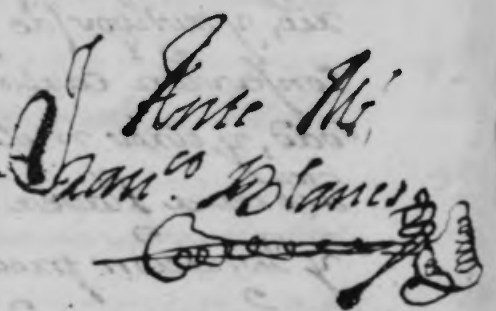 Ante Mí
Fran.co Blanes